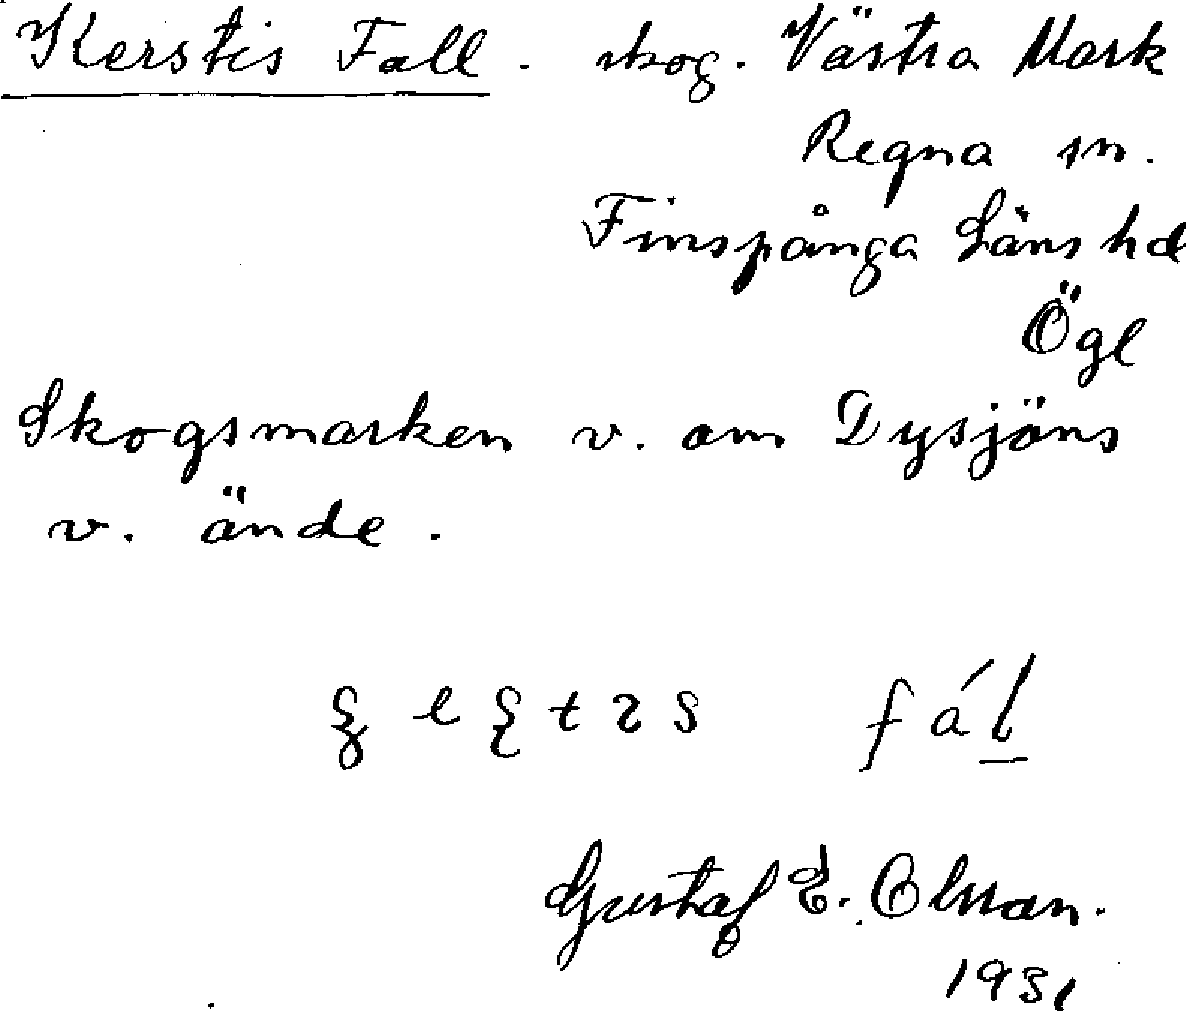 Kerstis Fall. skog. Västra Mark
Regna sn.
Finspånga Läns hd
Ögl
Skogsmarken v. om Dysjöns
v. ände.
fá l
Gustaf E. Olsson.
1931